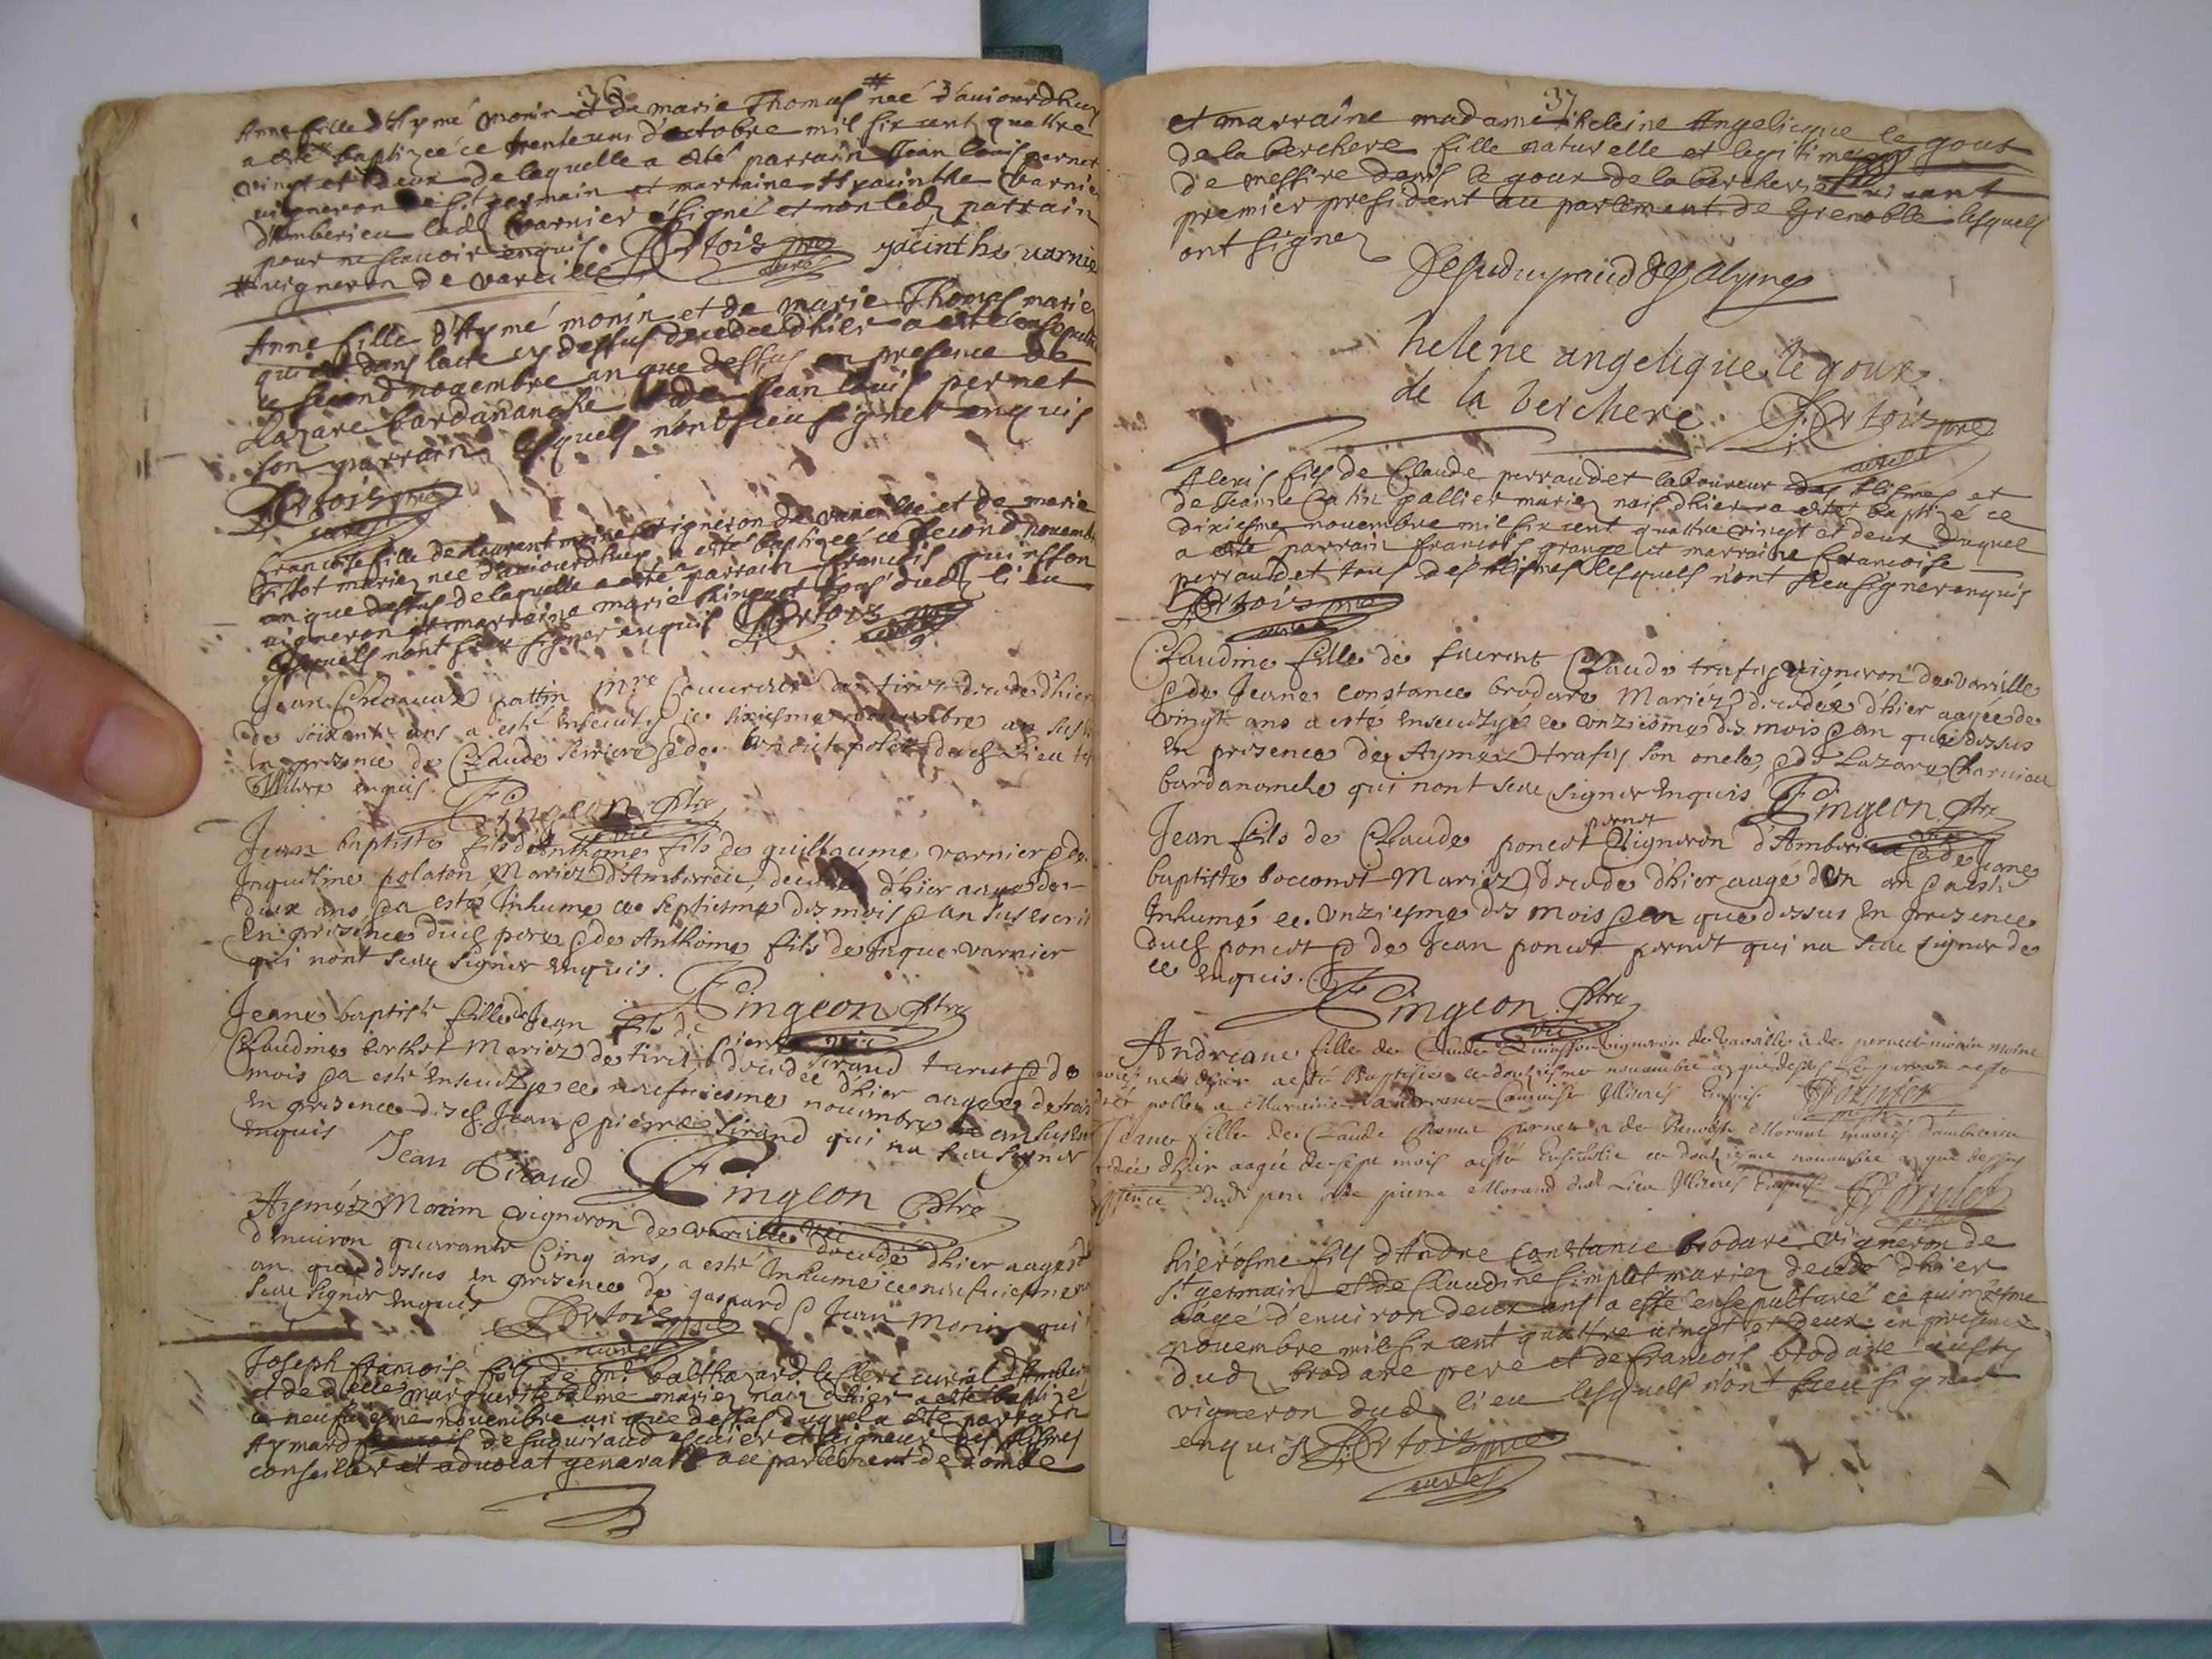 36
Anne fille d'Aymé monin et de marie Thomas # neé d'auiourdhuy
a esté baptizeé ce trente un d'octobre mil six cent quattre
vingt et deux de laquelle a esté parrain Jean Louis pernet
vigneron de st germain et marraine Hyacinthe varnier
d'amberieu lad varnier a signé et non led parrain
pour ne scauoir enquis. Artois pre yacinthe varnier
# vigneron de vareille curé
Anne fille d'Aymé monin et de marie Thomas mariez
qui est dans lacte cy dessus decedeé d'hier a esté
ce second nouembre an que dessus en presence de
Lazare bardananche et de Jean Louis pernet
son parrain lesquels n'ont sceu signer enquis
Artois pre
curé
francoise fille de Laurent moine vigneron de vareille et de marie
mariez neé d'auiourdhuy a esté baptizeé ce second nouembre
an que dessus de laquelle a esté parrain francois
vigneron et marraine marie dud lieu
lesquels n'ont sceu signer enquis Artois pre
curé
Jean pattin mre de decedé d'hier
de soixante ans a esté enseuely ce sixiesme nouembre an sus
en presence de Claude et de dud lieu
enquis. Pingeon Ptre
vic
Jean baptiste fils d'Anthoine fils de guillaume varnier et de
Jaqueline polaton Mariez d'Amberieu, decedé d'hier aagé de
deux ans et a esté Inhumé ce septiesme des mois et an sus escrit
en presence dud pere et de Anthoine fils de Jaque varnier
qui nont sceu signer enquis.
Pingeon Ptre
vic
Jeane baptiste fille de Jean fils de pierre Sirand et de
Claudine berthet Mariez de tiret decedeé d'hier aageé de trois
mois et a esté enseuelye ce neufuiesme nouembre an sus
en presence desd Jean et pierre Sirand qui na sceu signer
enquis Jean Sirand Pingeon Ptre
vic
Ayméz Monin vigneron de vareille decedé d'hier aagé
d'enuiron quarante Cinq ans, a esté Inhumé ce neufuiesme
an que dessus en presence de gaspard et Jean Monin qui
sceu signer enquis Artois pre
curé
Joseph francois fils de me balthazard curial d'Amberieu
et de dlle marguerite mariez nay d'hier a esté baptizé
ce neufuiesme nouembre an que dessus duquel a esté parrain
Aymard de suduiraud escuier et seigneur des Alymes
conseiller et aduocat general au parlement de dombe
37
et marraine madame heleine Angelicque le gout
de la berchere fille naturelle et legitime
de messire denis le goux de la berchere viuant
premier president au parlement de Grenoble lesquels
ont signez
Desuduyraud des alymes
helene angelique le goux
de la berchere Artois pre
curé
Alexis fils de Claude perraudet laboureur des Alismes et
de Jeanne Catin pallier mariez nais d'hier a esté baptizé ce
dixiesme nouembre mil six cent quattre vingt et deux duquel
a esté parrain francois grange et marraine francoise
perraudet tous des Alismes lesquels n'ont sceu signer enquis
Artois pre
curé
Claudine fille de Claude trafay vigneron de Vareille
et de Jeane Constance brodare Mariez decedeé d'hier aageé de
vingt ans a esté enseuelye ce onziesme des mois et an que dessus
en presence de Aymez trafay son oncle, et de Lazare
bardananche qui nont sceu signer Enquis Pingeon Ptre
vic
Jean fils de Claude poncet pernet Vigneron d'Amberieu et de Jeane
baptiste bocconet Mariez decedé d'hier aagé d'Un an et a esté
Inhumé ce onziesme des mois et an que dessus en presence
dud poncet et de Jean poncet pernet qui na sceu signer de
ce enquis. Pingeon Ptre
vic
Andreane fille de Claude vigneron de Vareille et de pernette monin moine
mariés neé d'hier a esté Baptiseé ce douziesme nouembre an que dessus Le parrain a esté
pollet et Maraine Andreane Illiterés Enquis
fille de Claude et de Benoiste Morand mariés d'amberieu
decedeé d'hier aageé de sept mois a esté ce douziesme nouembre an que dessus
dud pere et de pierre Morand dud Lieu Illiterés Enquis
hierosme fils d'Andre Constance brodare vigneron de
st germain et de Claudine simplet mariez decedé d'hier
aagé d'enuiron deux ans a esté ensepulturé ce quinziesme
nouembre mil six cent quattre vingt et deux en presence
dud brodare pere et de francois brodare aussy
vigneron dud lieu lesquels n'ont sceu signer
enquis Artois pre
curé